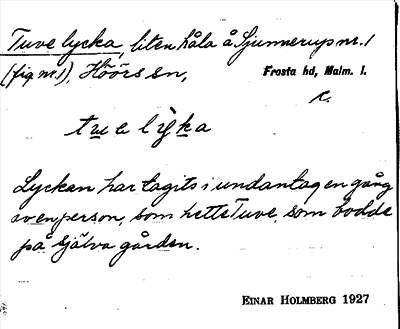 Tuve lycka, liten håla å Sjunnerup nr. 1
(fig nr. 1), Höörs sn, Frosta hd, Malm. l.
tue lyka
Lyckan har tagits i undantag en gång
av en person, som hette Tuve, som bodde
på själva gården.
EINAR HOLMBERG 1927